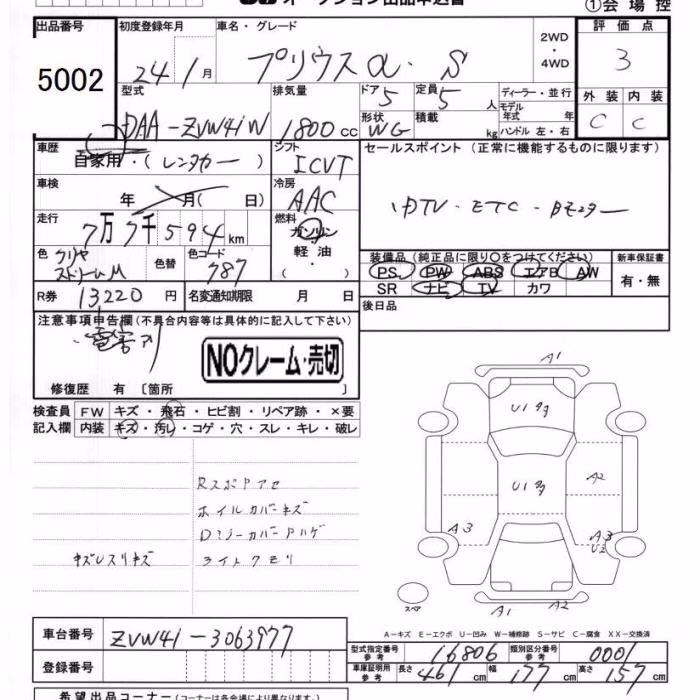 オークション出品申込書
①会場控
出品番号 初度登録年月 車名・グレード 2WD ・ 4WD 評価点
5002 24 1月 プリウスα・S 3
型式 排気量 ドア 5 定員 5人 ディーラー・並行 外装 内装
DAA-ZVW41W 1800cc 形状 WG 積載 kg モデル年式 年式 ハンドル 左・右 C C
車歴 自家用・(レンタカー) シフト ICVT セールスポイント (正常に機能するものに限ります)
車検 年 月( 日) 冷房 AAC
走行 7万7千594km 燃料 ガソリン 軽油・( )
色 色替 色コード 787
装備品 (純正品に限り○をつけてください) 新車保証書
PS PW ABS エアB AW 有・無
SR ナビ TV カワ
R券 13220円 名変通知期限 月 日 後日品
注意事項申告欄(不具合内容等は具体的に記入して下さい)
NOクレーム・売切
修復歴 有 〔箇所 〕
検査員 FW キズ・飛石・ヒビ割・リペア跡・×要
記入欄 内装 キズ・汚レ・コゲ・穴・スレ・キレ・破レ
A1
U1
A2
U1
A3 A3
U2
Rスポアセ
ホイルカバーキズ
Dミラーカバーハゲ
ライトクモリ
スペア
A1 A2
A-キズ E-エクボ U-凹み W-補修跡 S-サビ C-腐食 XX-交換済
車台番号 ZVW41-3063977
型式指定番号 参考 16806 類別区分番号 参考 0001
登録番号
車庫証明用 参考 長さ 461cm 幅 177cm 高さ 157cm
希望出品コーナー (コーナーは各会場により異なります。)